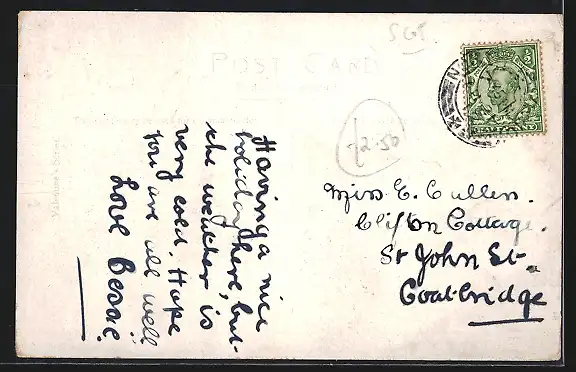 POST CARD
SGT
12.50
Having a nice
holiday here, but
the weather is
very cold. Hope
you are all well
Love Bessie.
Miss E. Cullen.
Clifton Cottage.
St John St.
Coatbridge
Valentine's Series